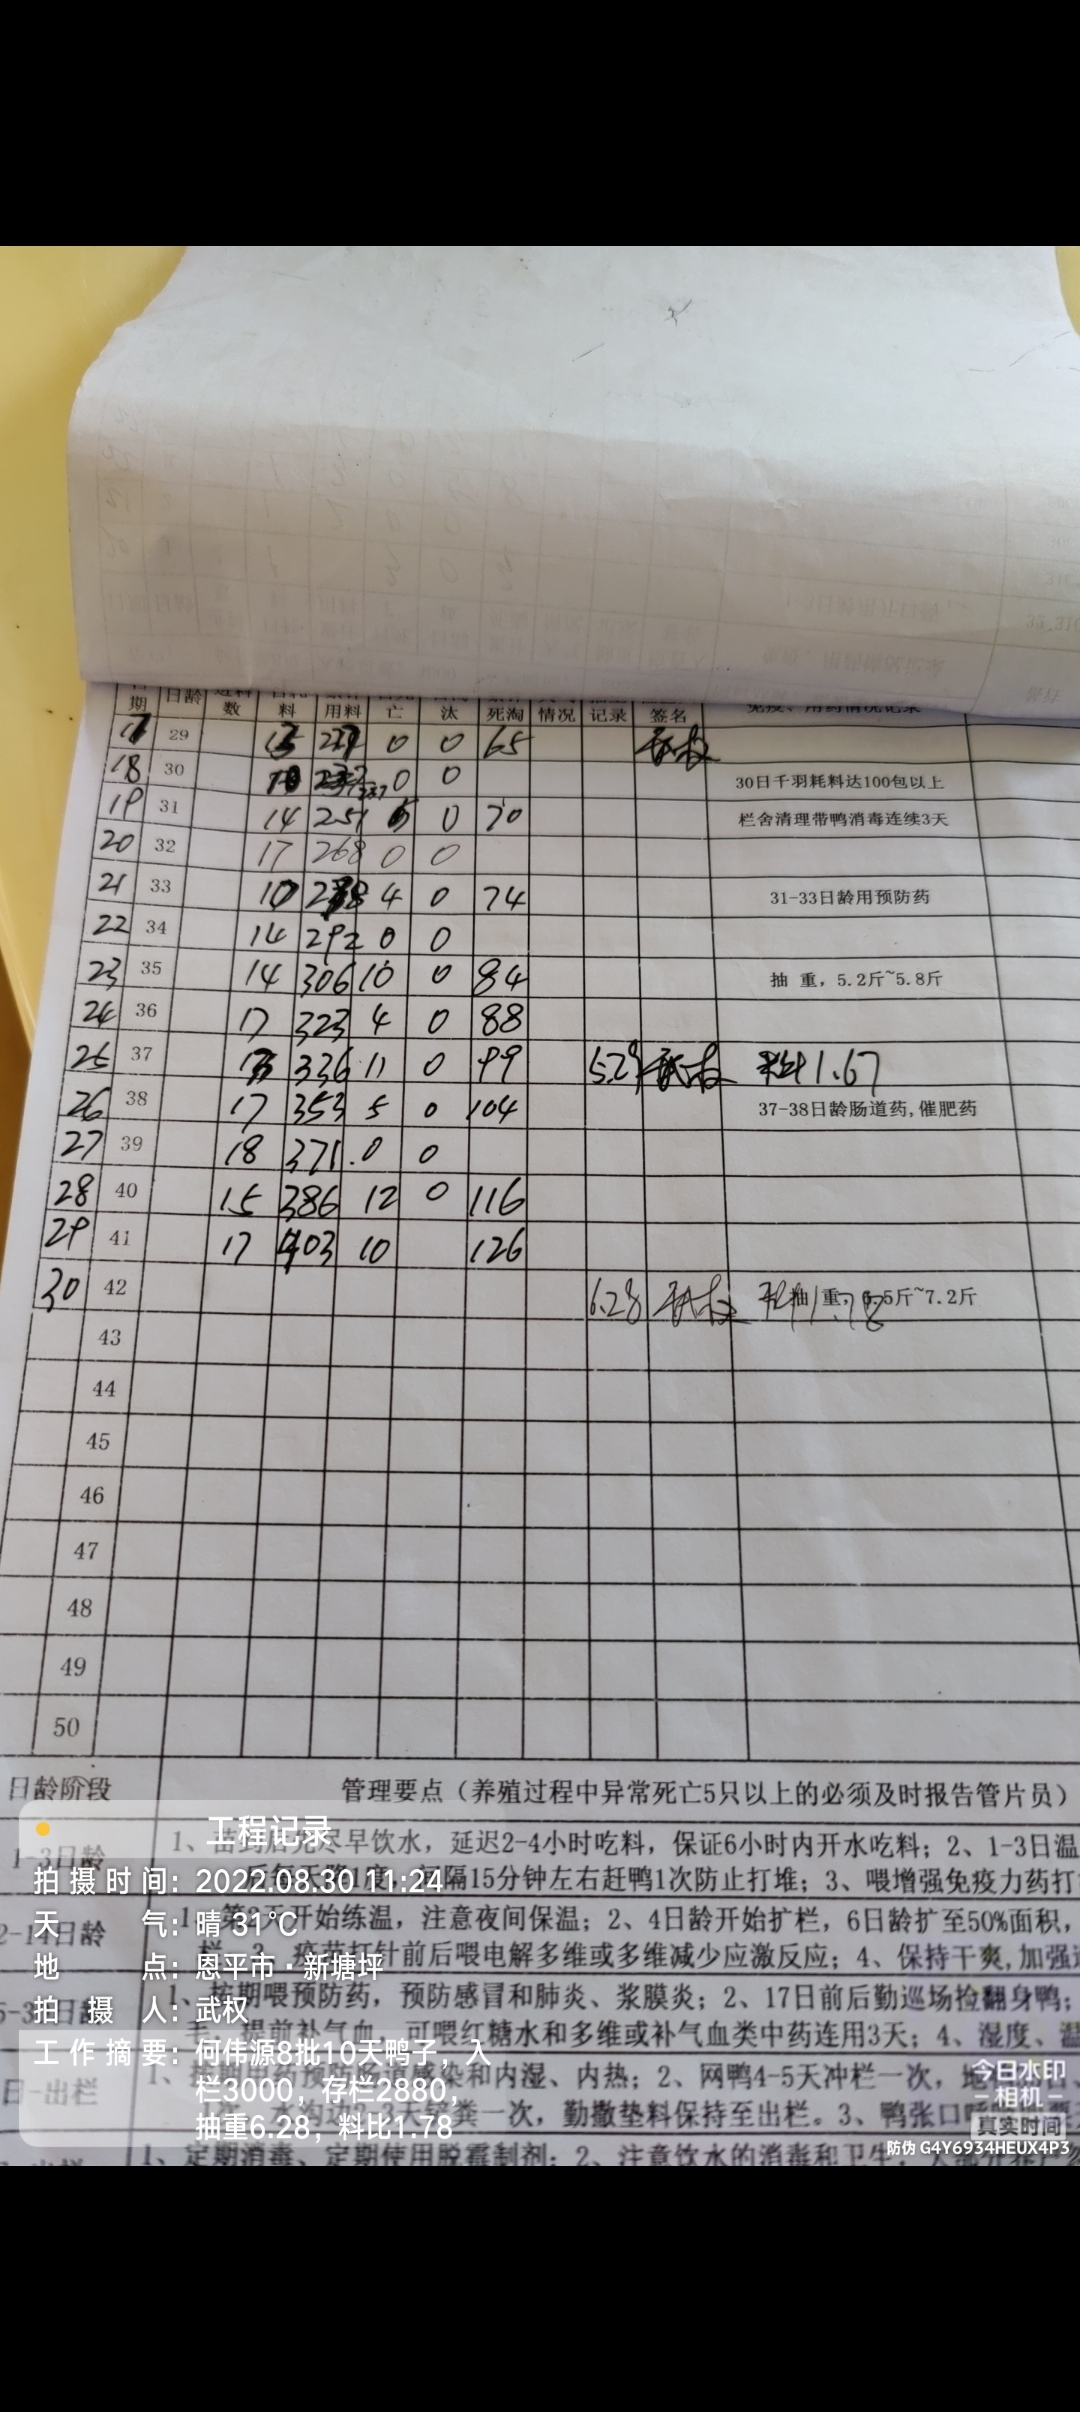 期 日龄 数 料 用料 亡 汰 死淘 情况 记录 签名 免疫、用药情况记录
17 29 0 0 65
18 30 0 0 30日千羽耗料达100包以上
19 31 14 251 5 0 70 栏舍清理带鸭消毒连续3天
20 32 17 268 0 0
21 33 10 278 4 0 74 31-33日龄用预防药
22 34 14 292 0 0
23 35 14 306 10 0 84 抽 重,5.2斤~5.8斤
24 36 17 323 4 0 88
25 37 13 336 11 0 99 5.29 料比1.67
26 38 17 353 5 0 104 37-38日龄肠道药,催肥药
27 39 18 371 0 0
28 40 15 386 12 0 116
29 41 17 403 10 126
30 42 6.28 抽 重,6.5斤~7.2斤 1.78
43
44
45
46
47
48
49
50
日龄阶段 管理要点(养殖过程中异常死亡5只以上的必须及时报告管片员)
1-3日龄 1、苗到后先尽早饮水,延迟2-4小时吃料,保证6小时内开水吃料;2、1-3日温
隔15分钟左右赶鸭1次防止打堆;3、喂增强免疫力药打
日龄 开始练温,注意夜间保温;2、4日龄开始扩栏,6日龄扩至50%面积,
疫苗打针前后喂电解多维或多维减少应激反应;4、保持干爽,加强
日龄 1、按期喂预防药,预防感冒和肺炎、浆膜炎;2、17日前后勤巡场捡翻身鸭;
毛,提前补气血,可喂红糖水和多维或补气血类中药连用3天;4、湿度、温
日-出栏 1、 和内湿、内热;2、网鸭4-5天冲栏一次,
一次,勤撒垫料保持至出栏。3、鸭张口
1、定期消毒、定期使用脱霉制剂;2、注意饮水的消毒和卫生,
工程记录
拍摄时间:2022.08.30 11:24
天 气:晴 31℃
地 点:恩平市·新塘坪
拍 摄 人:武权
工作摘要:何伟源8批10天鸭子,入
栏3000,存栏2880,
抽重6.28,料比1.78
今日水印
相机
真实时间
防伪 G4Y6934HEUX4P3